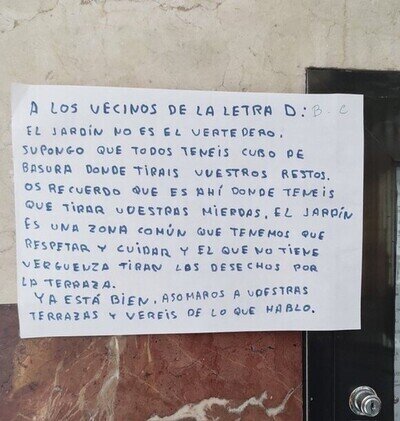 A LOS VECINOS DE LA LETRA D: B - C
EL JARDÍN NO ES EL VERTEDERO.
SUPONGO QUE TODOS TENEIS CUBO DE
BASURA DONDE TIRAIS VUESTROS RESTOS.
OS RECUERDO QUE ES AHÍ DONDE TENEIS
QUE TIRAR VUESTRAS MIERDAS, EL JARDÍN
ES UNA ZONA COMÚN QUE TENEMOS QUE
RESPETAR Y CUIDAR Y EL QUE NO TIENE
VERGUENZA TIRAN LOS DESECHOS POR
LA TERRAZA.
YA ESTÁ BIEN, ASOMAROS A VUESTRAS
TERRAZAS Y VEREIS DE LO QUE HABLO.